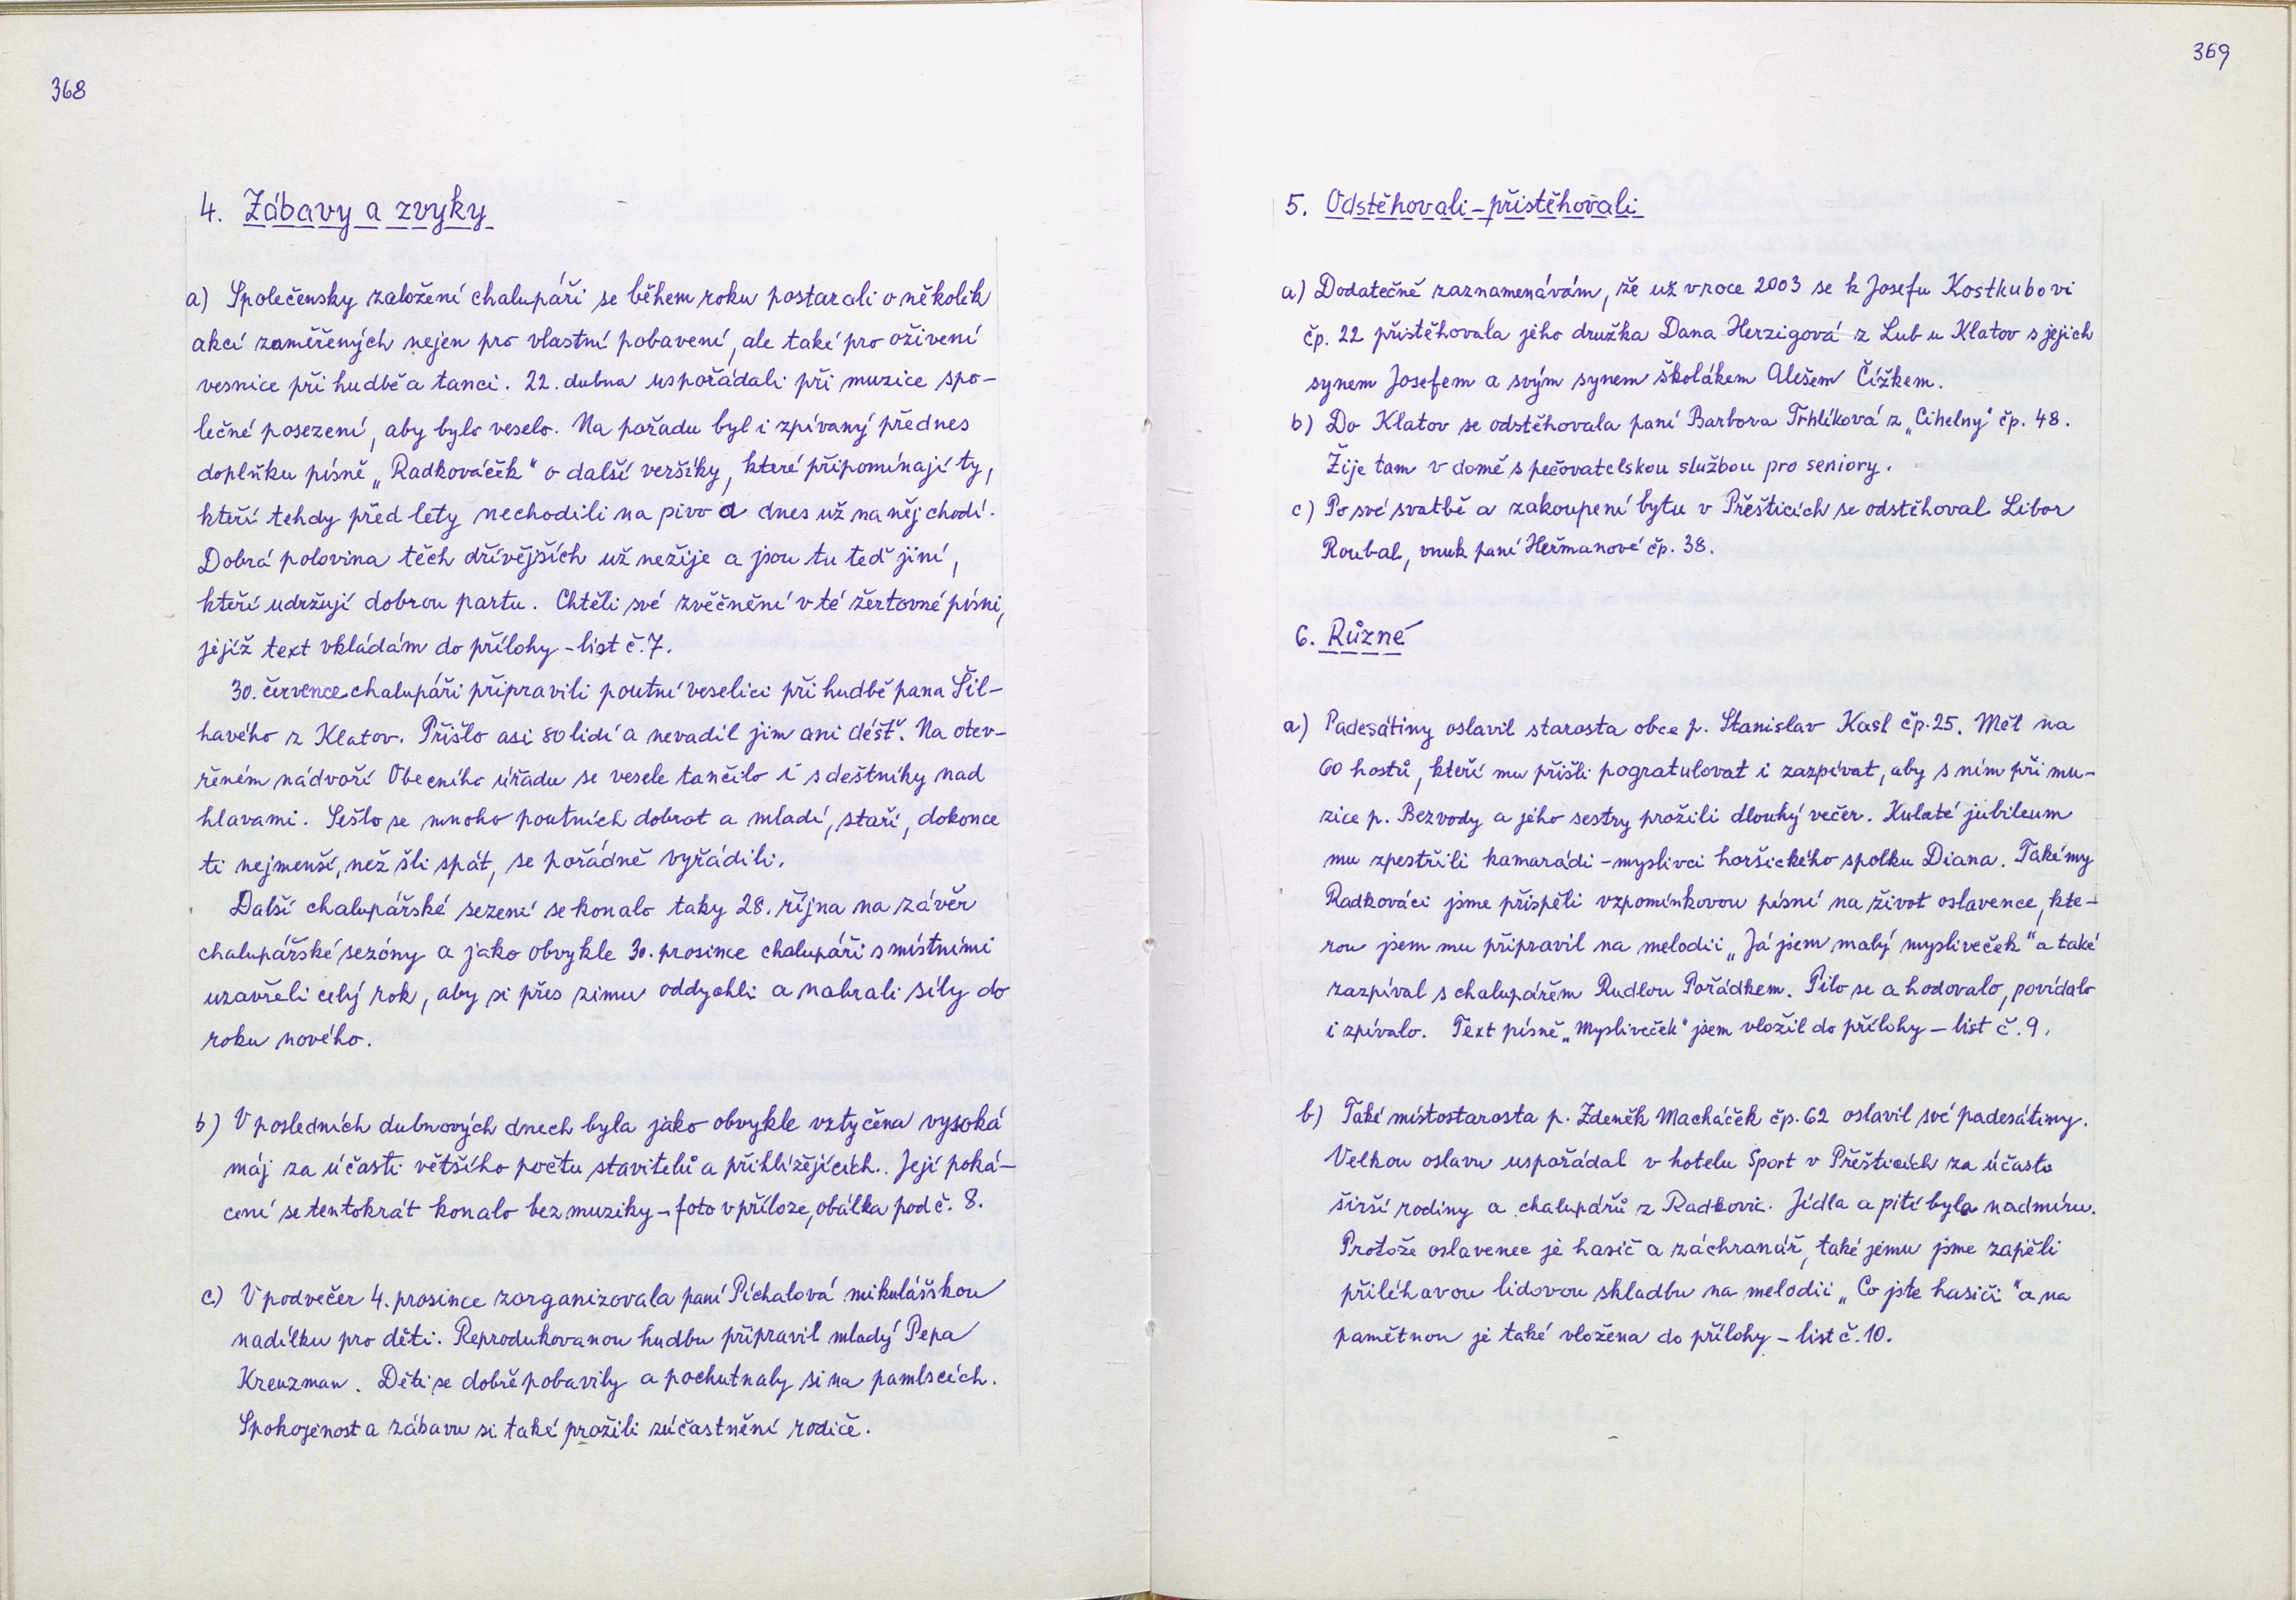 368
4. Zábavy a zvyky
a) Společensky založení chalupáři se během roku postarali o několik
akcí zaměřených nejen pro vlastní pobavení, ale také pro oživení
vesnice při hudbě a tanci. 22. dubna uspořádali při muzice spo-
lečné posezení, aby bylo veselo. Na pořadu byl i zpívaný přednes
doplňku písně „Radkováček“ o další veršíky, které připomínají ty,
kteří tehdy před lety nechodili na pivo a dnes už na něj chodí.
Dobrá polovina těch dřívějších už nežije a jsou tu teď jiní,
kteří udržují dobrou partu. Chtěli své zvěčnění v té žertovné písni,
jejíž text vkládám do přílohy - list č. 7.
30. července chalupáři připravili poutní veselici při hudbě pana Šil-
havého z Klatov. Přišlo asi 80 lidí a nevadil jim ani déšť. Na otev-
řeném nádvoří Obecního úřadu se vesele tančilo i s deštníky nad
hlavami. Sešlo se mnoho poutních dobrot a mladí, staří, dokonce
ti nejmenší, než šli spát, se pořádně vyřádili.
Další chalupářské sezení se konalo taky 28. října na závěr
chalupářské sezóny a jako obvykle 30. prosince chalupáři s místními
uzavřeli celý rok, aby si přes zimu oddychli a nabrali síly do
roku nového.
b) V posledních dubnových dnech byla jako obvykle vztyčena vysoká
máj za účasti většího počtu stavitelů a přihlížejících. Její poká-
cení se tentokrát konalo bez muziky - foto v příloze, obálka pod č. 8.
c) V podvečer 4. prosince zorganizovala paní Píchalová mikulášskou
nadílku pro děti. Reprodukovanou hudbu připravil mladý Pepa
Kreuzman. Děti se dobře pobavily a pochutnaly si na pamlscích.
Spokojenost a zábavu si také prožili zúčastnění rodiče.
369
5. Odstěhovali - přistěhovali
a) Dodatečně zaznamenávám, že už v roce 2003 se k Josefu Kostkubovi
čp. 22 přistěhovala jeho družka Dana Herzigová z Lub u Klatov s jejich
synem Josefem a svým synem školákem Alešem Čížkem.
b) Do Klatov se odstěhovala paní Barbora Trhlíková z „Cihelny“ čp. 48.
Žije tam v domě s pečovatelskou službou pro seniory.
c) Po své svatbě a zakoupení bytu v Přešticích se odstěhoval Libor
Roubal, vnuk paní Heřmanové čp. 38.
6. Různé
a) Padesátiny oslavil starosta obce p. Stanislav Kasl čp. 25. Měl na
60 hostů, kteří mu přišli pogratulovat i zazpívat, aby s ním při mu-
zice p. Bezvody a jeho sestry prožili dlouhý večer. Kulaté jubileum
mu zpestřili kamarádi - myslivci horšického spolku Diana. Také my
Radkováci jsme přispěli vzpomínkovou písní na život oslavence, kte-
rou jsem mu připravil na melodii „Já jsem malý mysliveček“ a také
zazpíval s chalupářem Rudlou Pořádkem. Pilo se a hodovalo, povídalo
i zpívalo. Text písně „Mysliveček“ jsem vložil do přílohy - list č. 9.
b) Také místostarosta p. Zdeněk Macháček čp. 62 oslavil své padesátiny.
Velkou oslavu uspořádal v hotelu Sport v Přešticích za účasti
širší rodiny a chalupářů z Radkovic. Jídla a pití byla nadmíru.
Protože oslavenec je hasič a záchranář, také jemu jsme zapěli
přiléhavou lidovou skladbu na melodii „Co jste hasiči“ a na
pamětnou je také vložena do přílohy - list č. 10.